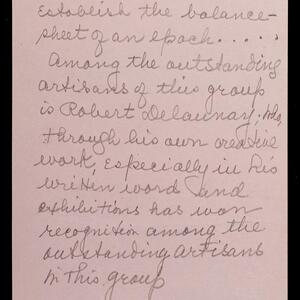 establish the balance-
sheet of an epoch.....
Among the outstanding
artisans of this group
is Robert Delaunay; who,
through his own creative
work, especially in his
written word and
exhibitions has won
recognition among the
outstanding artisans
in this group